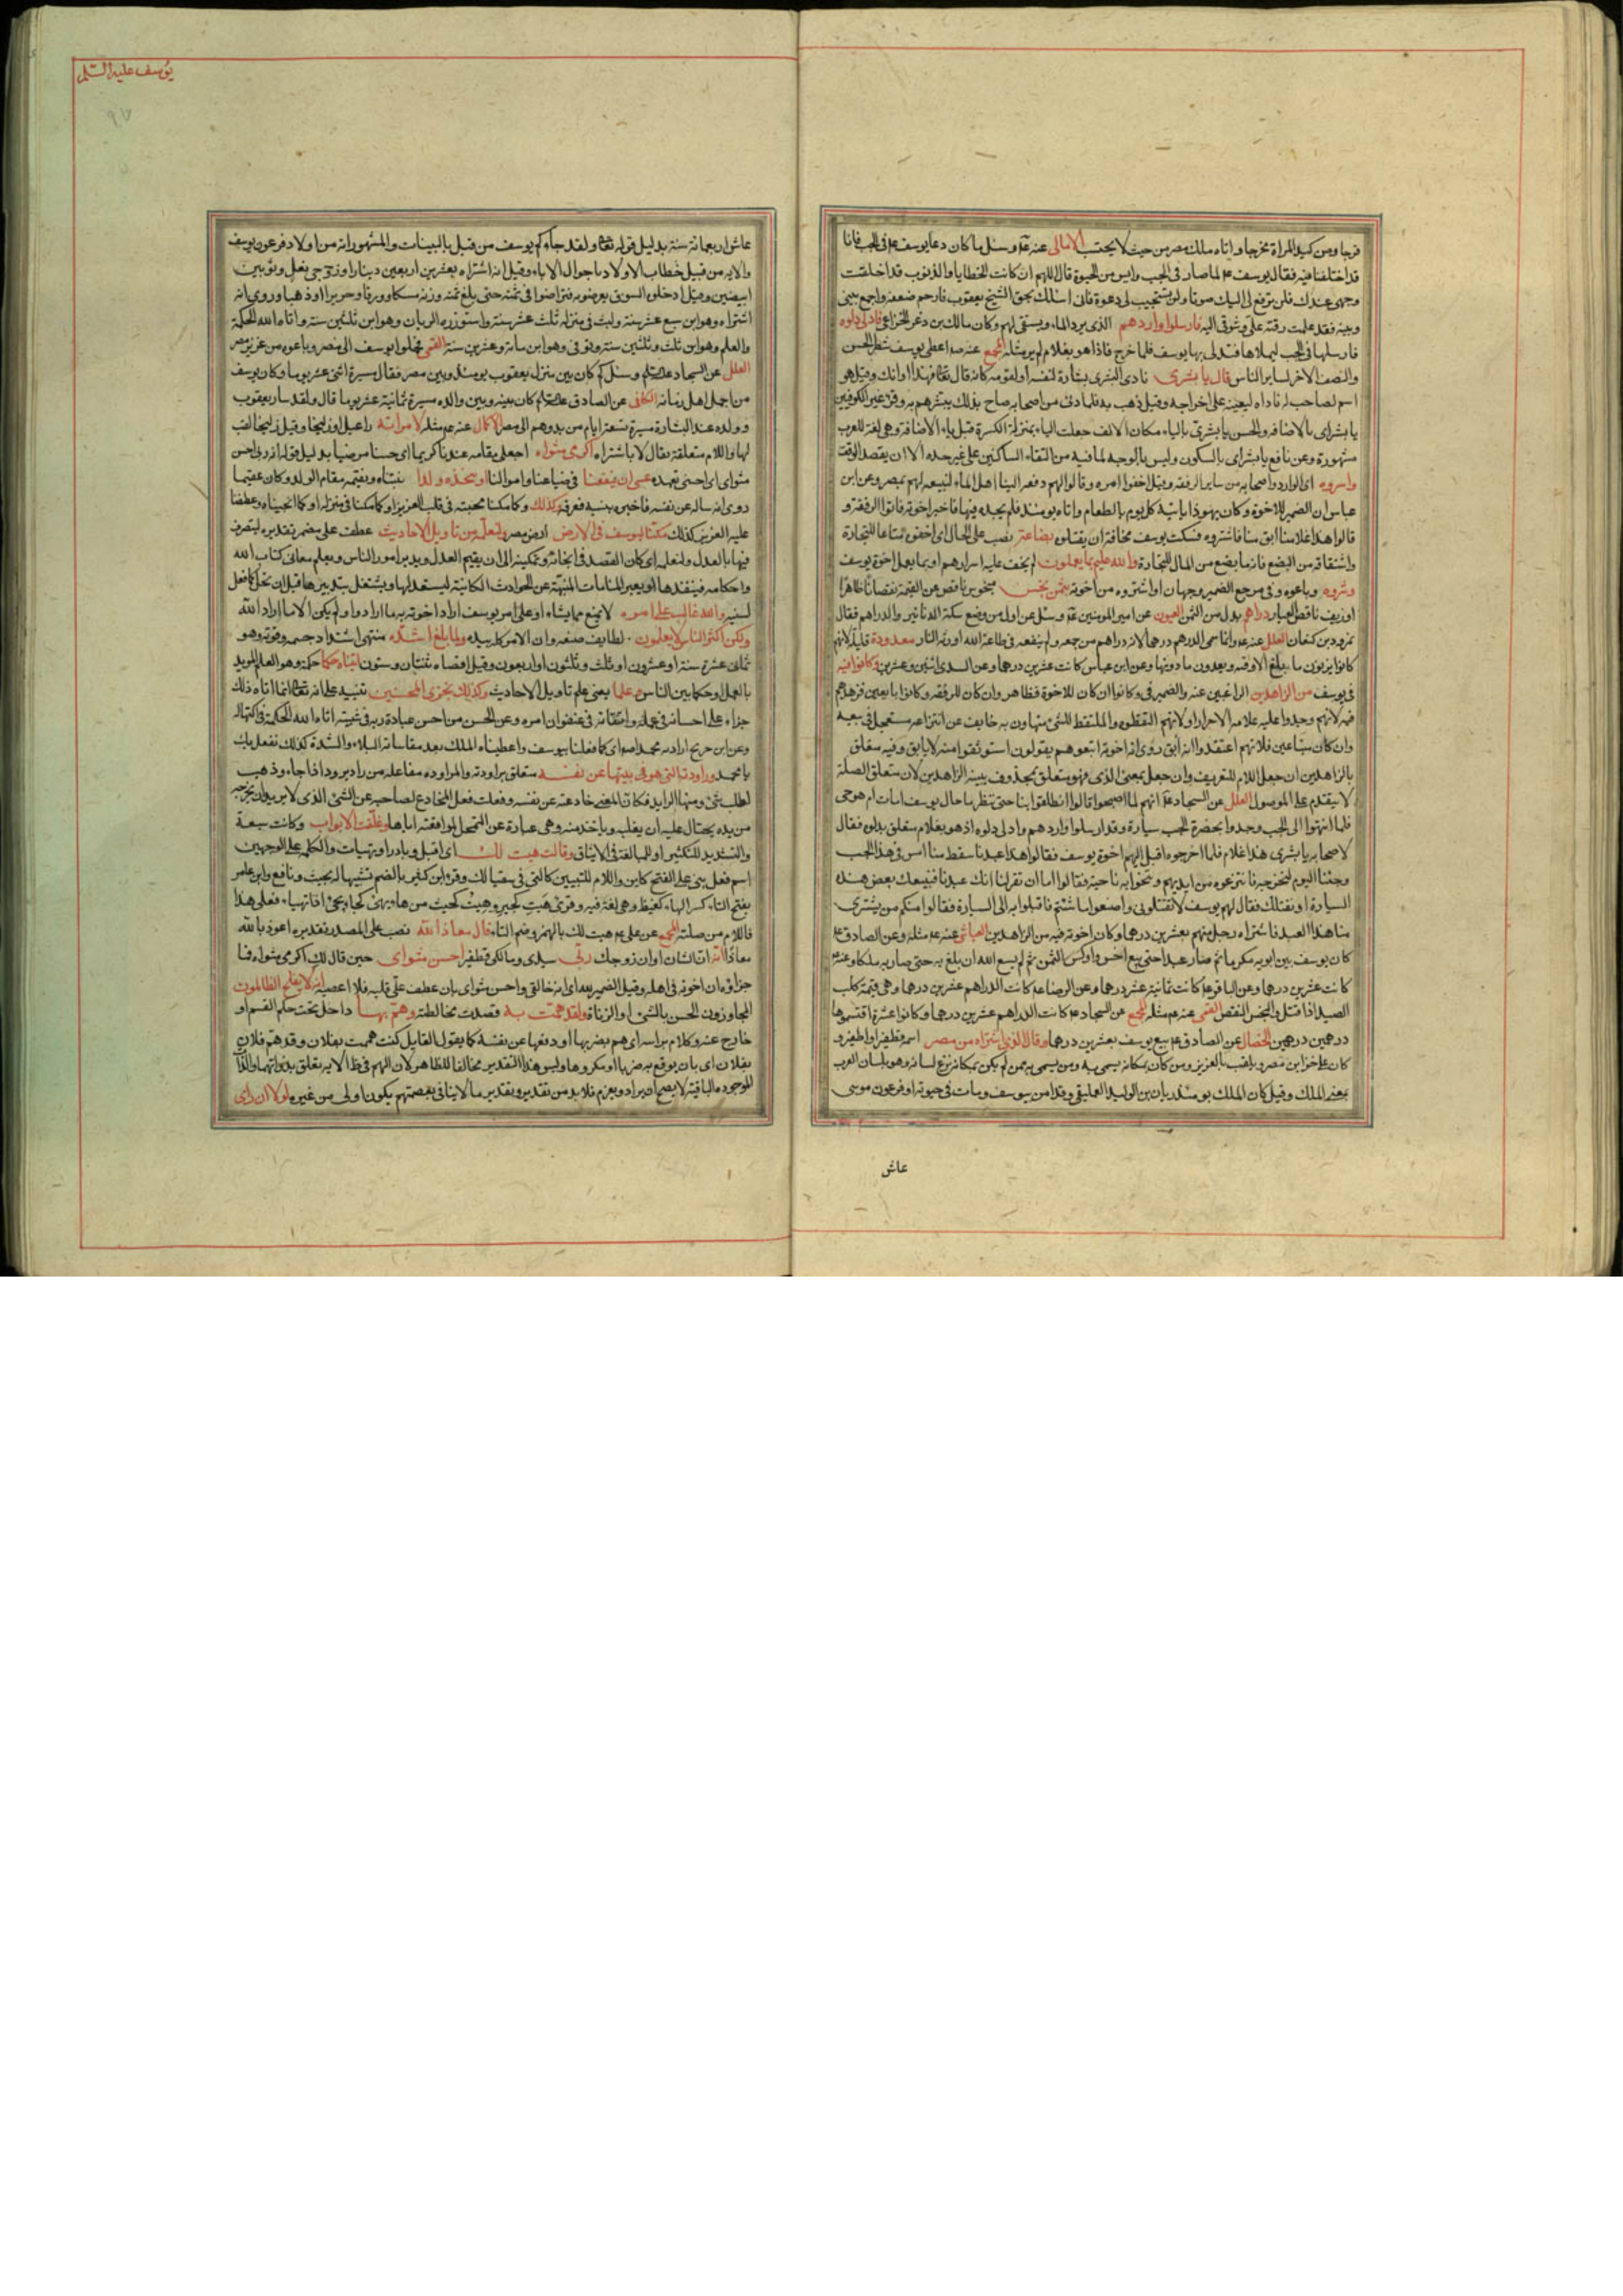 فرجا ومن كيد المراة مخرجا واتاه ملك مصر من حيث لا يحتسب الامالى عنه ع وسئل ما كان دعا يوسف ع فى الجب فانا
قد اختلفنا فيه فقال ان يوسف ع لما صار فى الجب وايس من الحيوة قال اللهم ان كانت الخطايا والذنوب قد اخلقت
وجهى عندك فلن ترفع لى اليك صوتا ولن تستجيب لى دعوة فانى اسئلك بحق الشيخ يعقوب فارحم ضعفه واجمع بينى
وبينه فقد علمت رقته على وشوقى اليه فارسلوا واردهم الذى يرد الماء ويستقى لهم وكان مالك بن ذعر الخزاعى فادلى دلوه
فارسلها فى الجب ليملاها فتدلى بها يوسف فلما خرج فاذا هو بغلام لم ير مثله المجمع عنه ص اعطى يوسف شطر الحسن
والنصف الاخر لساير الناس قال يا بشرى نادى البشرى بشارة لنفسه او لقومه كانه قال تعالى فهذا اوانك وقيل هو
اسم لصاحب له ناداه ليعينه على اخراجه وقيل ذهب به فلما دنى من اصحابه صاح بذلك يبشرهم به وقرء غير الكوفيين
يا بشراى بالاضافه والحسن يا بشرىّ بالياء مكان الالف جعلت الياء بمنزلة الكسرة قبل ياء الاضافة وهى لغة للعرب
مشهورة وعن نافع يا بشراى بالسكون وليس بالوجه لما فيه من التقاء الساكنين على غير حده الا ان يقصد الوقف
واسروه اى الوارد واصحابه من ساير الرفقه وقيل اخفوا امره وقالوا لهم دفعه الينا اهل الماء لنبيعه لهم بمصر وعن ابن
عباس ان الضمير للاخوة وكان يهوذا ياتيه كل يوم بالطعام واتاه يومئذ فلم يجده فيها فاخبر اخوته فاتوا الرفقة و
قالوا هذا غلامنا ابق منا فاشتروه فسكت يوسف مخافة ان يقتلوه بضاعة نصب على الحال اى اخفوه متاعا للتجارة
واشتقاقه من البضع فانه ما بضع من المال للتجارة والله عليم بما يعملون لم يخف عليه اسرارهم او بما يعمل اخوة يوسف
وشروه وباعوه وفى مرجع الضمير وجهان او اشتروه من اخوته بثمن بخس مبخوس ناقص عن القيمة نقصانا ظاهرا
او زيف ناقص العيار دراهم بدل من الثمن العيون عن امير المومنين ع وسئل عن اول من وضع سكة الدنانير والدراهم فقال
نمرود بن كنعان العلل عنه ع وانما سمى الدرهم درهما لانه دار هم من جمعه ولم ينفعه فى طاعة الله اورثه النار معدودة قليلة لانهم
كانوا يزنون ما يبلغ الاوقيه ويعدون ما دونها وعن ابن عباس كانت عشرين درهما وعن السدى اثنين وعشرين وكانوا فيه
فى يوسف من الزاهدين الراغبين عنه والضمير فى وكانوا ان كان للاخوة فظاهر وان كان للرفقة وكانوا بايعين فزهدهم
فيه لانهم وجدوا عليه علامه الاحرار او لانهم التقطوه والملتقط للشئ متهاون به خايف عن انتزاعه مستعجل فى بيعه
وان كان مبتاعين فلانهم اعتقدوا انه ابق روى ان اخوته اتبعوهم يقولون استوثقوا منه لا يابق وفيه متعلق
بالزاهدين ان جعل اللام للتعريف وان جعل بمعنى الذى فهو متعلق بمحذوف يبينه الزاهدين لان متعلق الصلة
لا يتقدم على الموصول العلل عن السجاد ع انهم لما اصبحوا قالوا انطلقوا بنا حتى ننظر ما حال يوسف امات ام هو حى
فلما انتهوا الى الجب وجدوا بحضرة الجب سيارة وقد ارسلوا واردهم وادلى دلوه اذ هو بغلام متعلق بدلوه فقال
لاصحابه يا بشرى هذا غلام فلما اخرجوه اقبل اليهم اخوة يوسف فقالوا هذا عبدنا سقط منا امس فى هذا الجب
وجئنا اليوم لنخرجه فانتزعوه من ايديهم وتنحوا به ناحية فقالوا اما ان تقر لنا انك عبدنا فنبيعك بعض هذه
السيارة او نقتلك فقال لهم يوسف لا تقتلونى واصنعوا ما شئتم فاقبلوا به الى السيارة فقالوا منكم من يشترى
منا هذا العبد فاشتراه رجل منهم بعشرين درهما وكان اخوته فيه من الزاهدين العياشى عنه ع مثله وعن الصادق ع
كان يوسف بين ابويه مكرما ثم صار عبدا حتى بيع اخس واوكس الثمن ثم لم يمنع الله ان بلغ به حتى صار به ملكا وعنه ع
كانت عشرين درهما وعن الباقر ع كانت ثمانية عشر درهما وعن الرضا ع كانت الدراهم عشرين درهما وهى قيمة كلب
الصيد اذا قتل والبخس النقص القمى عنه ع مثله المجمع عن السجاد ع كانت الدراهم عشرين درهما وكانوا عشرة اقتسموها
درهمين درهمين الخصال عن الصادق ع بيع يوسف بعشرين درهما وقال الذى اشتراه من مصر اسمه قطفير او اطفير و
كان على خزاين مصر ويلقب بالعزيز ومن كان بمكانه يسمى به ومن يسمى به ممن لم يكن بمكانه نزع لسانه وهو بلسان العرب
بمعنى الملك وقيل كان الملك يومئذ ريان بن الوليد العمليقى وقد امن بيوسف ومات فى حيوته او فرعون موسى
عاش
يوسف عليه السلم
عاش اربعمائة سنة بدليل قوله تعالى ولقد جاءكم يوسف من قبل بالبينات والمشهور انه من اولاد فرعون يوسف
والاية من قبيل خطاب الاولاد باحوال الاباء وقيل انه اشتراه بعشرين اربعين دينارا وزوجى نعل وثوبين
ابيضين وقيل ادخلوه السوق يعرضونه فترافعوا فى ثمنه حتى بلغ ثمنه وزنه مسكا وورقا وحريرا او ذهبا وروى انه
اشتراه وهو ابن سبع عشر سنة ولبث فى منزله ثلث عشر سنة واستوزره الريان وهو ابن ثلثين سنة واتاه الله الحكمة
والعلم وهو ابن ثلث وثلثين سنة وتوفى وهو ابن مائة وعشرين سنة القمى فحملوا يوسف الى مصر وباعوه من عزيز مصر
العلل عن السجاد ع وسئل كم كان بين منزل يعقوب يومئذ وبين مصر فقال مسيرة اثنى عشر يوما وكان يوسف
من اجمل اهل زمانه الكافى عن الصادق ع كان بينه وبين والده مسيرة ثمانية عشر يوما قال ولقد سار يعقوب
وولده عند البشارة مسيرة تسعة ايام من بدوهم الى مصر الاكمال عنه ع مثله لامراته راعيل او زليخا وقيل زليخا لقب
لها واللام متعلقة بقال لا باشتراه اكرمى مثواه اجعلى مقامه عندنا كريما اى حسنا مرضيا بدليل قوله انه ربى احسن
مثواى اى احسنى تعهده عسى ان ينفعنا فى ضياعنا واموالنا او نتخذه ولدا نتبناه ونقيمه مقام الولد وكان عقيما
روى انه ساله عن نفسه فاخبره بنسبه فعرفه وكذلك وكما مكنا محبته فى قلب العزيز او كما مكناه فى منزله او كما انجيناه وعطفنا
عليه العزيز كذلك مكنا ليوسف فى الارض ارض مصر ولنعلمه من تاويل الاحاديث عطف على مضمر تقديره ليتصرف
فيها بالعدل ولنعلمه اى كان القصد فى انجائه وتمكينه الى ان يقيم العدل ويدبر امور الناس ويعلم معانى كتاب الله
واحكامه فينفذها او يعبر المنامات المنبهة عن الحوادث الكائنة ليستعد لها ويشتغل بتدبيرها قبل ان تحل كما فعل
لسنيه والله غالب على امره لا يمنع مما يشاء او على امر يوسف اراد اخوته به ما ارادوا ولم يكن الا ما اراد الله
ولكن اكثر الناس لا يعلمون لطايف صنعه وان الامر كله بيده ولما بلغ اشده منتهى اشتداد جسمه وقوته وهو
ثمانى عشرة سنة او عشرون او ثلث وثلثون او اربعون وقيل اقصاه ثنتان وستون اتيناه حكما حكمة وهو العلم المويد
بالعمل او حكما بين الناس وعلما يعنى علم تاويل الاحاديث وكذلك نجزى المحسنين تنبيه على انه تعالى انما اتاه ذلك
جزاء على احسانه فى عمله واتقانه فى عنفوان امره وعن الحسن من احسن عبادة ربه فى شبيبته اتاه الله الحكمة فى اكتهاله
وعن ابن جريح اراد به محمد ص اى كما فعلنا بيوسف واعطيناه الملك بعد مقاساته البلاء والشدة كذلك نفعل بك
يا محمد وراودته التى هو فى بيتها عن نفسه متعلق براودته والمراوده مفاعله من راد يرود اذا جاء وذهب
لطلب شئ ومنها الرايد فكان المعنى خادعته عن نفسه وفعلت فعل المخادع لصاحبه عن الشئ الذى لا يريد ان يخرجه
من يده يحتال عليه ان يغلبه وياخذ منه وهى عبارة عن التمحل لموافقته اياها وغلقت الابواب وكانت سبعة
والتشديد للتكثير او للمبالغة فى الايثاق وقالت هيت لك اى اقبل وبادر او تهيات والكلمه على الوجهين
اسم فعل بنى على الفتح كاين واللام للتبيين كالتى فى سقيا لك وقرء ابن كثير بالضم تشبيها له بحيث ونافع وابن عامر
بفتح التاء وكسر الهاء كغيظ وهى لغة فيه وقرئ هيت كجير وهئت كجئت من هاء يهئ كجاء يجئ اذا تهياء فعلى هذا
فاللام من صلته المجمع عن على ع هيت لك بالهمز وضم التاء قال معاذ الله نصب على المصدر تقديره اعوذ بالله
معاذا انه ان الشان او ان زوجك ربى سيدى ومالكى قطفير احسن مثواى حين قال لك اكرمى مثواه فما
جزاؤه ان اخونه فى اهله وقيل الضمير لله اى انه خالقى واحسن مثواى بان عطف على قلبه فلا اعصيه انه لا يفلح الظالمون
المجاوزون الحسن بالشئ او الزناة ولقد همت به قصدت مخالطته وهم بها داخل تحت حكم القسم او
خارج عنه وكلام براسه اى هم بضربها او دفعها عن نفسه كما يقول القايل كنت هممت بفلان وقد هم فلان
بفلان اى بان يوقع به ضربا او مكروها وليس هذا التقدير مخالفا للظاهر لان الهم فى ظ الاية يتعلق بذواتهما والذا
الموجوده الباقية لا يصح ان يراد ويعزم فلا بد من تقدير وتقدير ما لا ينافى بعصمتهم يكون اولى من غيره لولا ان راى